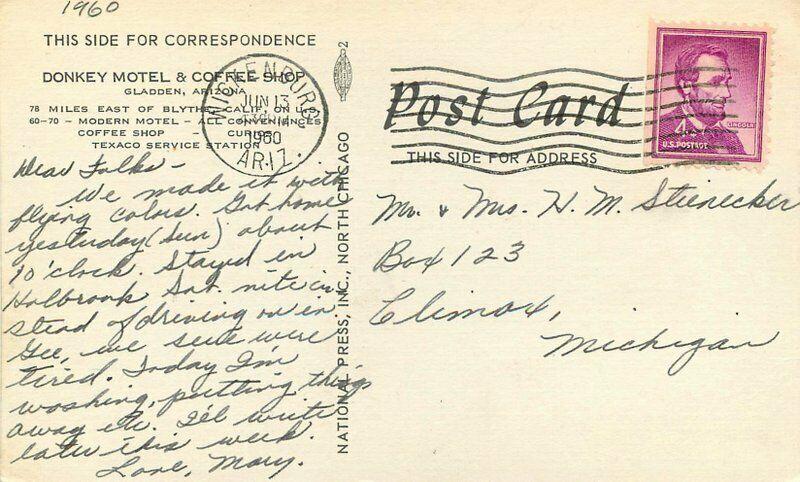 1960
THIS SIDE FOR CORRESPONDENCE
DONKEY MOTEL & COFFEE SHOP
GLADDEN, ARIZONA
78 MILES EAST OF BLYTHE, CALIF, ON U.S.
60-70 - MODERN MOTEL - ALL CONVENIENCES
COFFEE SHOP - CURIOS
TEXACO SERVICE STATION
WICKENBURG
JUN 13
1960
ARIZ.
Dear Folks -
We made it with
flying colors. Got home
yesterday (Sun) about
1 o'clock. Stayed in
Holbrook Sat. nite in
stead of driving on in
Gee, we sure were
tired. Today I'm
washing, putting things
away etc. I'll write
later this week.
Love, Mary.
2
NATIONAL PRESS, INC., NORTH CHICAGO
Post Card
THIS SIDE FOR ADDRESS
LINCOLN
4¢
U.S. POSTAGE
Mr. & Mrs. H. M. Stienecker
Box 123
Climax,
Michigan